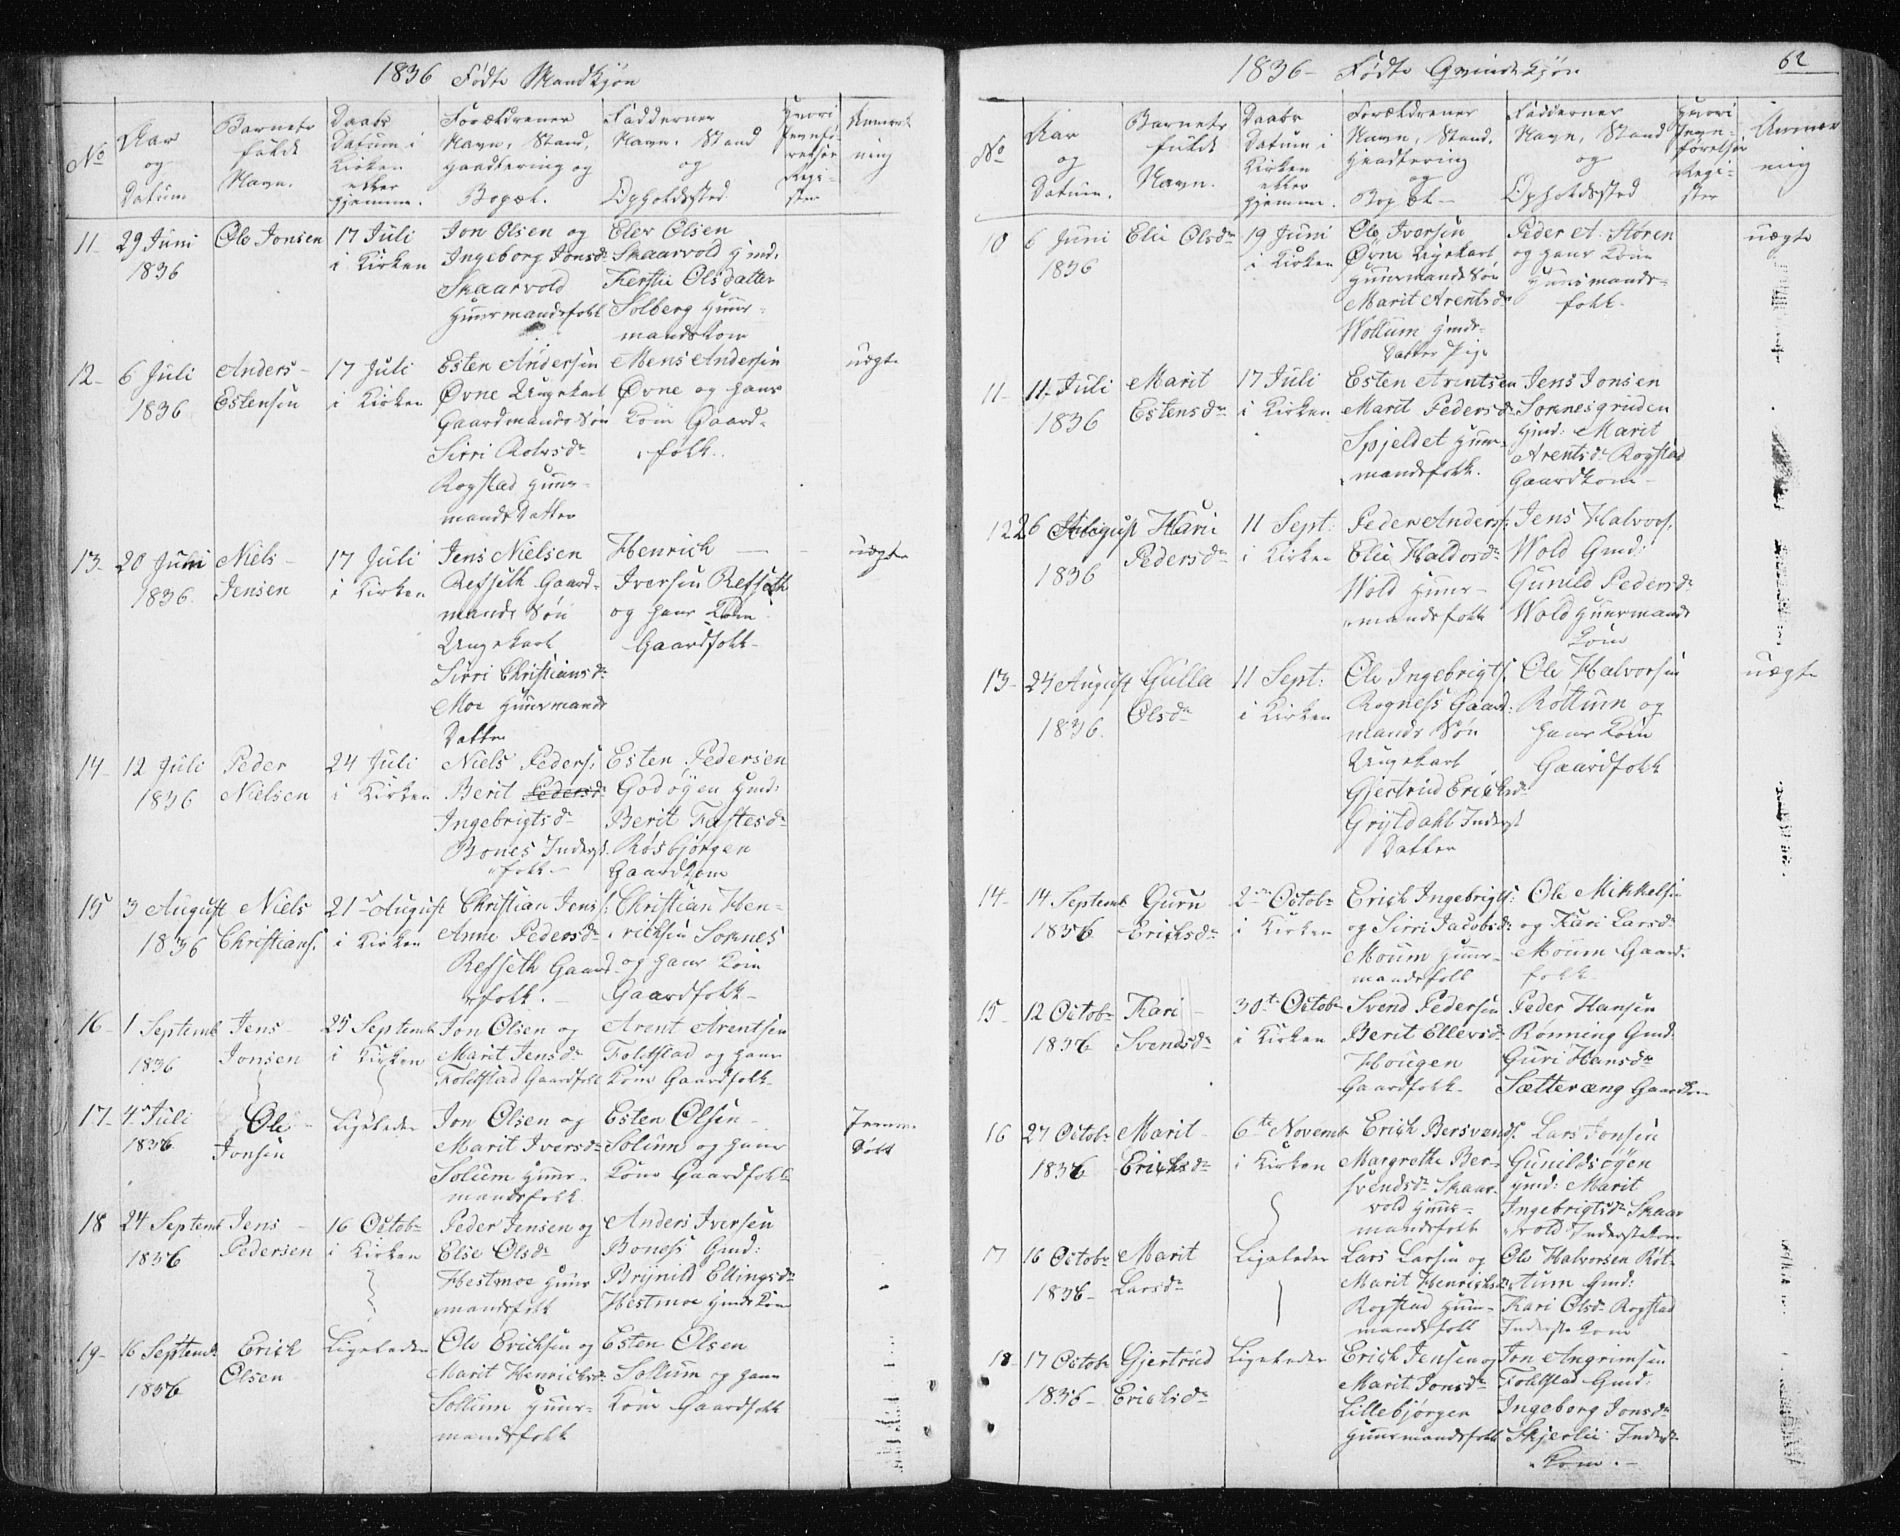 1836 Fødte Mandkjøn
No
Aar og Datum
Barnets fulde Navn.
Daabs Datum i Kirken eller Hjemme.
Forældrenes Navn, Stand, Haandtering og Bopæl.
Faddernes Navn, Stand og Opholdssted
Hvori Jevnførelses Register
Anmærkning
11. 29 Juni 1836
Ole Jonsen
17 Juli i Kirken
Jon Olsen og
Ingeborg Jonsdr
Skaarvold
Huusmandsfolk
Elev Olsen
Skaarvold Hmd:
Kerstie Olsdatter
Solberg Huus-
mandskone
12- 6 Juli 1836
Anders Estensen
17 Juli i Kirken
Esten Andersen
Øvne Ungekarl
Gaardmands Søn
Sirri Rolvsdr
Rogstad Huus-
mands Datter
Mens Andersen
Øvne og hans
Kone Gaard-
folk.
uægte
13- 20 Juni 1836.
Niels Jensen
17 Juli i Kirken
Jens Nielsen
Refseth Gaard-
mands Søn
Ungekarl
Sirri Christiansdr
Moe Huusmands
Datter
Henrich
Iversen Refseth
og hans Kone
Gaardfolk-
uægte
14- 12 Juli 1836
Peder Nielsen
24 Juli i Kirken
Niels Peders:
Berit Pedersdr
Ingebrigtsdr
Bones Inderst-
folk-
Esten Pedersen
Godøyen Hmd:
Berit Fastesdr
Røsbjørgen
Gaardkone
15 3 August 1836
Niels Christians:
21de August i Kirken
Christian Jens:
Anne Pedersdr
Refseth Gaard-
folk.
Christian Hen-
richsen Soknes
og hans Kone
Gaardfolk-
16- 1 Septemb 1836
Jens Jonsen
25 Septemb i Kirken
Jon Olsen og
Marit Jensdr
Foldstad Gaardfolk
Arent Arentsen
Foldstad og hans
Kone Gaardfolk-
17- 4de Juli 1836
Ole Jonsen
Ligeledes
Jon Olsen og
Marit Iversdr
Solium Huus-
mandsfolk
Esten Olsen
Solium og hans
Kone Gaardfolk
Hjemme
Døbt
18 24 Septemb 1836
Jens Pedersen
16 Octobr i Kirken
Peder Jensen og
Else Olsdr
Hestmoe Huus
mandsfolk
Anders Iversen
Boness Gmd:
Brynild Ellingsdr
Hestmoe Hmds Kone
19- 16 Septembr 1836
Erich Olsen
Ligeledes
Ole Erichsen og
Marit Henrichsdr
Sollium Huus-
mandsfolk
Esten Olsen
Sollum og hans
Kone Gaardfolk
1836- Fødte Qvindekjøn
62
No
Aar og Datum.
Barnets fulde Navn.
Daabs Datum i Kirken eller Hjemme.
Forældrenes Navn, Stand, Haandtering og Bopæl-
Faddernes Navn, Stand og Opholdssted
Hvori Jevnførelses Register
Anmærkning
10 6 Juni 1836
Elie Olsdr
19 Juni i Kirken
Ole Iversen
Øvne Ungekarl
Huusmands Søn
Marit Arentsdr
Wollum Hmds-
Datter Pige
Peder A: Støren
og hans Kone
Huusmands-
folk.
uægte
11- 11. Juli 1836
Marit Estensdr
17 Juli i Kirken
Esten Arentsen
Marit Pedersdr
Spjeldet Huus-
mandsfolk.
Jens Jonsen
Soknesgruden
Hmd: Marit
Arentsdr Rogstad
Gaardkone-
12 26 August 1836
Kari Pedersdr
11 Sept: i Kirken
Peder Anders:
Elie Haldosdr
Wold Huus-
mandsfolk
Jens Halvors:
Wold Gmd:
Gunild Pedersdr
Wold Huusmands
Kone
13- 24 August 1836.
Gulla Olsdr
11 Sept: i Kirken
Ole Ingebrigts:
Rogness Gaard:
mands Søn
Ungekarl
Gjertrud Erichsdr
Grytdahl Inderst
Datter
Ole Halvorsen
Røttum og
hans Kone
Gaardfolk
uægte
14- 14 Septemb 1836
Guru Erichsdr
2den Octobr i Kirken
Erich Ingebrigts:
og Sirri Jacobsdr
Moum Huus-
mandsfolk
Ole Mikkelsen
og Kari Larsdr
Moum Gaard-
folk.
15- 12 Octobr 1836
Kari Svendsdr
30te Octobr i Kirken
Svend Pedersen
Berit Ellevsdr
Hougen
Gaardfolk-
Peder Hansen
Rønning Gmd:
Guri Hansdr
Sætteræng Gaardkone
16 27 Octobr 1836
Marit Erichsdr
6te Novemb i Kirken
Erich Bersvends:
Margrethe Ber-
svendsdr Skaar-
vold Huus-
mandsfolk
Lars Jonsen
Gunildsøyen
Hmd: Marit
Ingebrigtsdr Skaar
vold Inderstkone
17 16 Octobr 1836-
Marit Larsdr
Ligeledes
Lars Larsen og
Marit Henrichsdr
Rogstad Huus-
mandsfolk
Ole Halvorsen Røt-
tum Gmd:
Kari Olsdr Rogstad
Inderste Kone
18- 17 Octobr 1836-
Gjertrud Erichsdr
Ligeledes
Erich Jensen og
Marit Jonsdr
Lillebjørgen
Huusmandsfolk
Jon Angrimsen
Foldstad Gmd:
Ingeborg Jonsdr
Skjerlie Inderst-
Kone.-